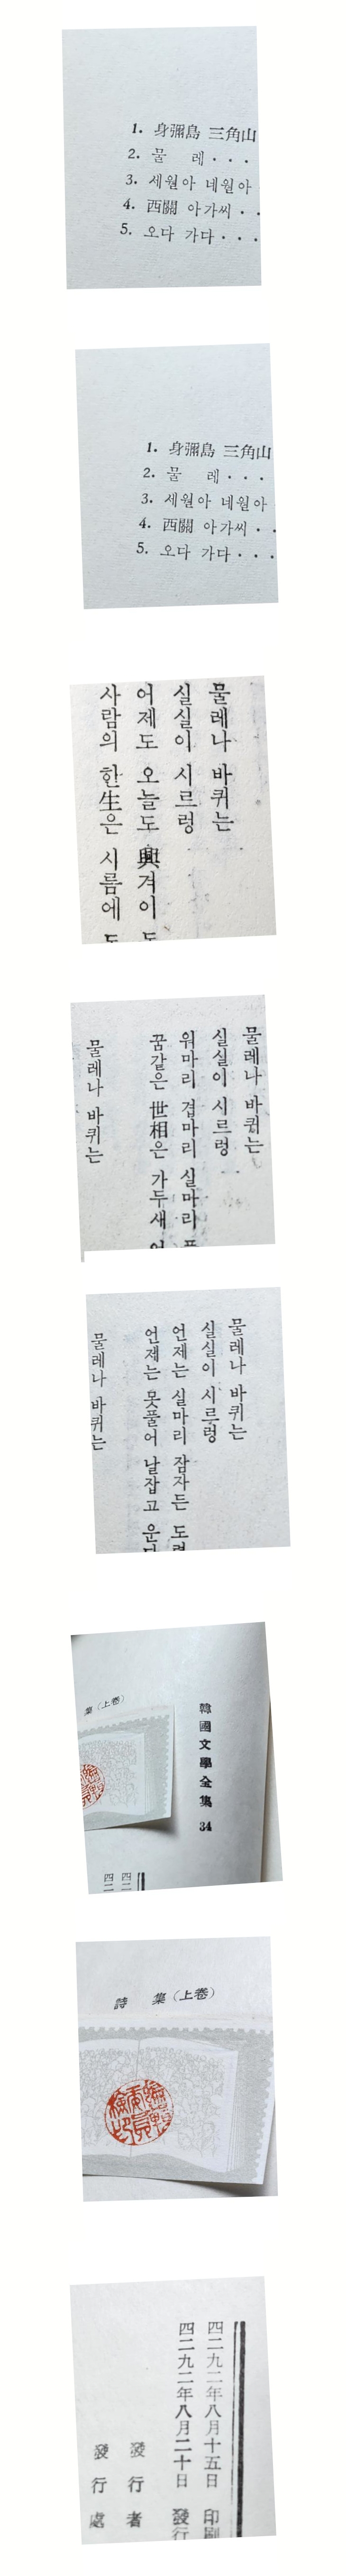 1. 身彌島 三角山
2. 물 레 · · ·
3. 세월아 네월아
4. 西關 아가씨 · ·
5. 오다 가다 · · ·
1. 身彌島 三角山
2. 물 레 · · ·
3. 세월아 네월아
4. 西關 아가씨 · ·
5. 오다 가다 · · ·
물레나 바퀴는
실실이 시르렁
어제도 오늘도 興겨이
사람의 한生은 시름에
물레나 바퀴는
실실이 시르렁
워마리 겹마리 실마리
꿈같은 世相은 가두새
물레나 바퀴는
물레나 바퀴는
실실이 시르렁
언제는 실마리 잠자든
언제는 못풀어 날잡고 운다
물레나 바퀴는
韓國文學全集 34
集 (上卷)
四二
四二
詩 集 (上卷)
四二九二年八月十五日 印刷
四二九二年八月二十日 發行
發行者
發行處